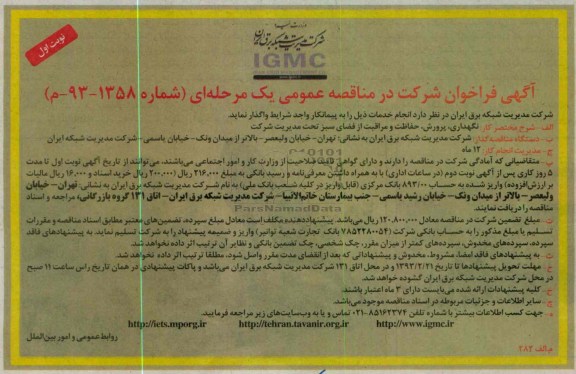 نوبت اول
وزارت نیرو
شرکت مدیریت شبکه برق ایران
IGMC
آگهی فراخوان شرکت در مناقصه عمومی یک مرحله‌ای (شماره ۱۳۵۸-۹۳-م)
شرکت مدیریت شبکه برق ایران در نظر دارد انجام خدمات ذیل را به پیمانکار واجد شرایط واگذار نماید.
الف -شرح مختصر کار: نگهداری، پرورش، حفاظت و مراقبت از فضای سبز تحت مدیریت شرکت
ب- دستگاه مناقصه‌گذار: شرکت مدیریت شبکه برق ایران به نشانی: تهران- خیابان ولیعصر- بالاتر از میدان ونک- خیابان یاسمی- شرکت مدیریت شبکه برق ایران
ج- مدیریت انجام کار: ۱۲ ماه
متقاضیانی که آمادگی شرکت در مناقصه را دارند و دارای گواهی تایید صلاحیت از وزارت کار و امور اجتماعی می‌باشند، می‌توانند از تاریخ آگهی نوبت اول تا مدت
۵ روز کاری پس از آگهی نوبت دوم (در ساعات اداری) با به همراه داشتن معرفی‌نامه و رسید بانکی به مبلغ ۲۱۶,۰۰۰ ریال (۲۰۰,۰۰۰ ریال خرید اسناد و ۱۶,۰۰۰ ریال مالیات
بر ارزش‌افزوده) واریز شده به حساب ۸۹۳/۰۰ بانک مرکزی (قابل واریز در کلیه شعب بانک ملی) به نام شرکت مدیریت شبکه برق ایران به نشانی: تهران- خیابان
ولیعصر- بالاتر از میدان ونک- خیابان رشید یاسمی- جنب بیمارستان خاتم‌الانبیا- شرکت مدیریت شبکه برق ایران- اتاق ۱۳۱ گروه بازرگانی، مراجعه و اسناد
مناقصه را دریافت نمایند.
ث- مبلغ تضمین شرکت در مناقصه معادل ۱۲۰,۸۰۰,۰۰۰ ریال می‌باشد. پیشنهاددهنده مکلف است معادل مبلغ سپرده، تضمین‌های معتبر مطابق اسناد مناقصه و مقررات
تسلیم یا مبلغ مذکور را به حساب بانکی شرکت (۷۸۵۲۴۸۰۰۵۴ بانک تجارت شعبه توانیر) واریز و ضمیمه پیشنهاد را به شرکت تسلیم نماید. به پیشنهادهای فاقد
سپرده، سپرده‌های مخدوش، سپرده‌های کمتر از میزان مقرر، چک شخصی، چک تضمین بانکی و نظایر آن ترتیب اثر داده نخواهد شد.
به پیشنهادهای فاقد امضا، مشروط، مخدوش و پیشنهاداتی که بعد از انقضای مدت مقرر واصل شود، مطلقا ترتیب اثر داده نخواهد شد.
مهلت تحویل پیشنهادها تا تاریخ ۱۳۹۳/۲/۲۱ و در محل اتاق ۱۳۱ شرکت مدیریت شبکه برق ایران می‌باشد و پاکات پیشنهادی در همان تاریخ راس ساعت ۱۱ صبح
در محل شرکت مدیریت شبکه برق ایران گشوده خواهد شد.
کلیه پیشنهادات ارائه شده می‌بایست دارای ۳ ماه اعتبار باشند.
سایر اطلاعات و جزئیات مربوطه در اسناد مناقصه موجود می‌باشد.
جهت کسب اطلاعات بیشتر با شماره تلفن ۸۵۱۶۲۳۷۴-۰۲۱ تماس و یا به وب‌سایت‌های زیر مراجعه فرمایید.
http://iets.mporg.ir http://tehran.tavanir.org.ir http://www.igmc.ir
روابط عمومی و امور بین‌الملل
م.الف ۲۸۲
ParsNamadData